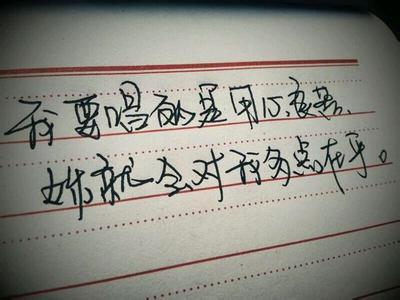 我要唱的是用心良苦、
妳就会对我多点在乎。